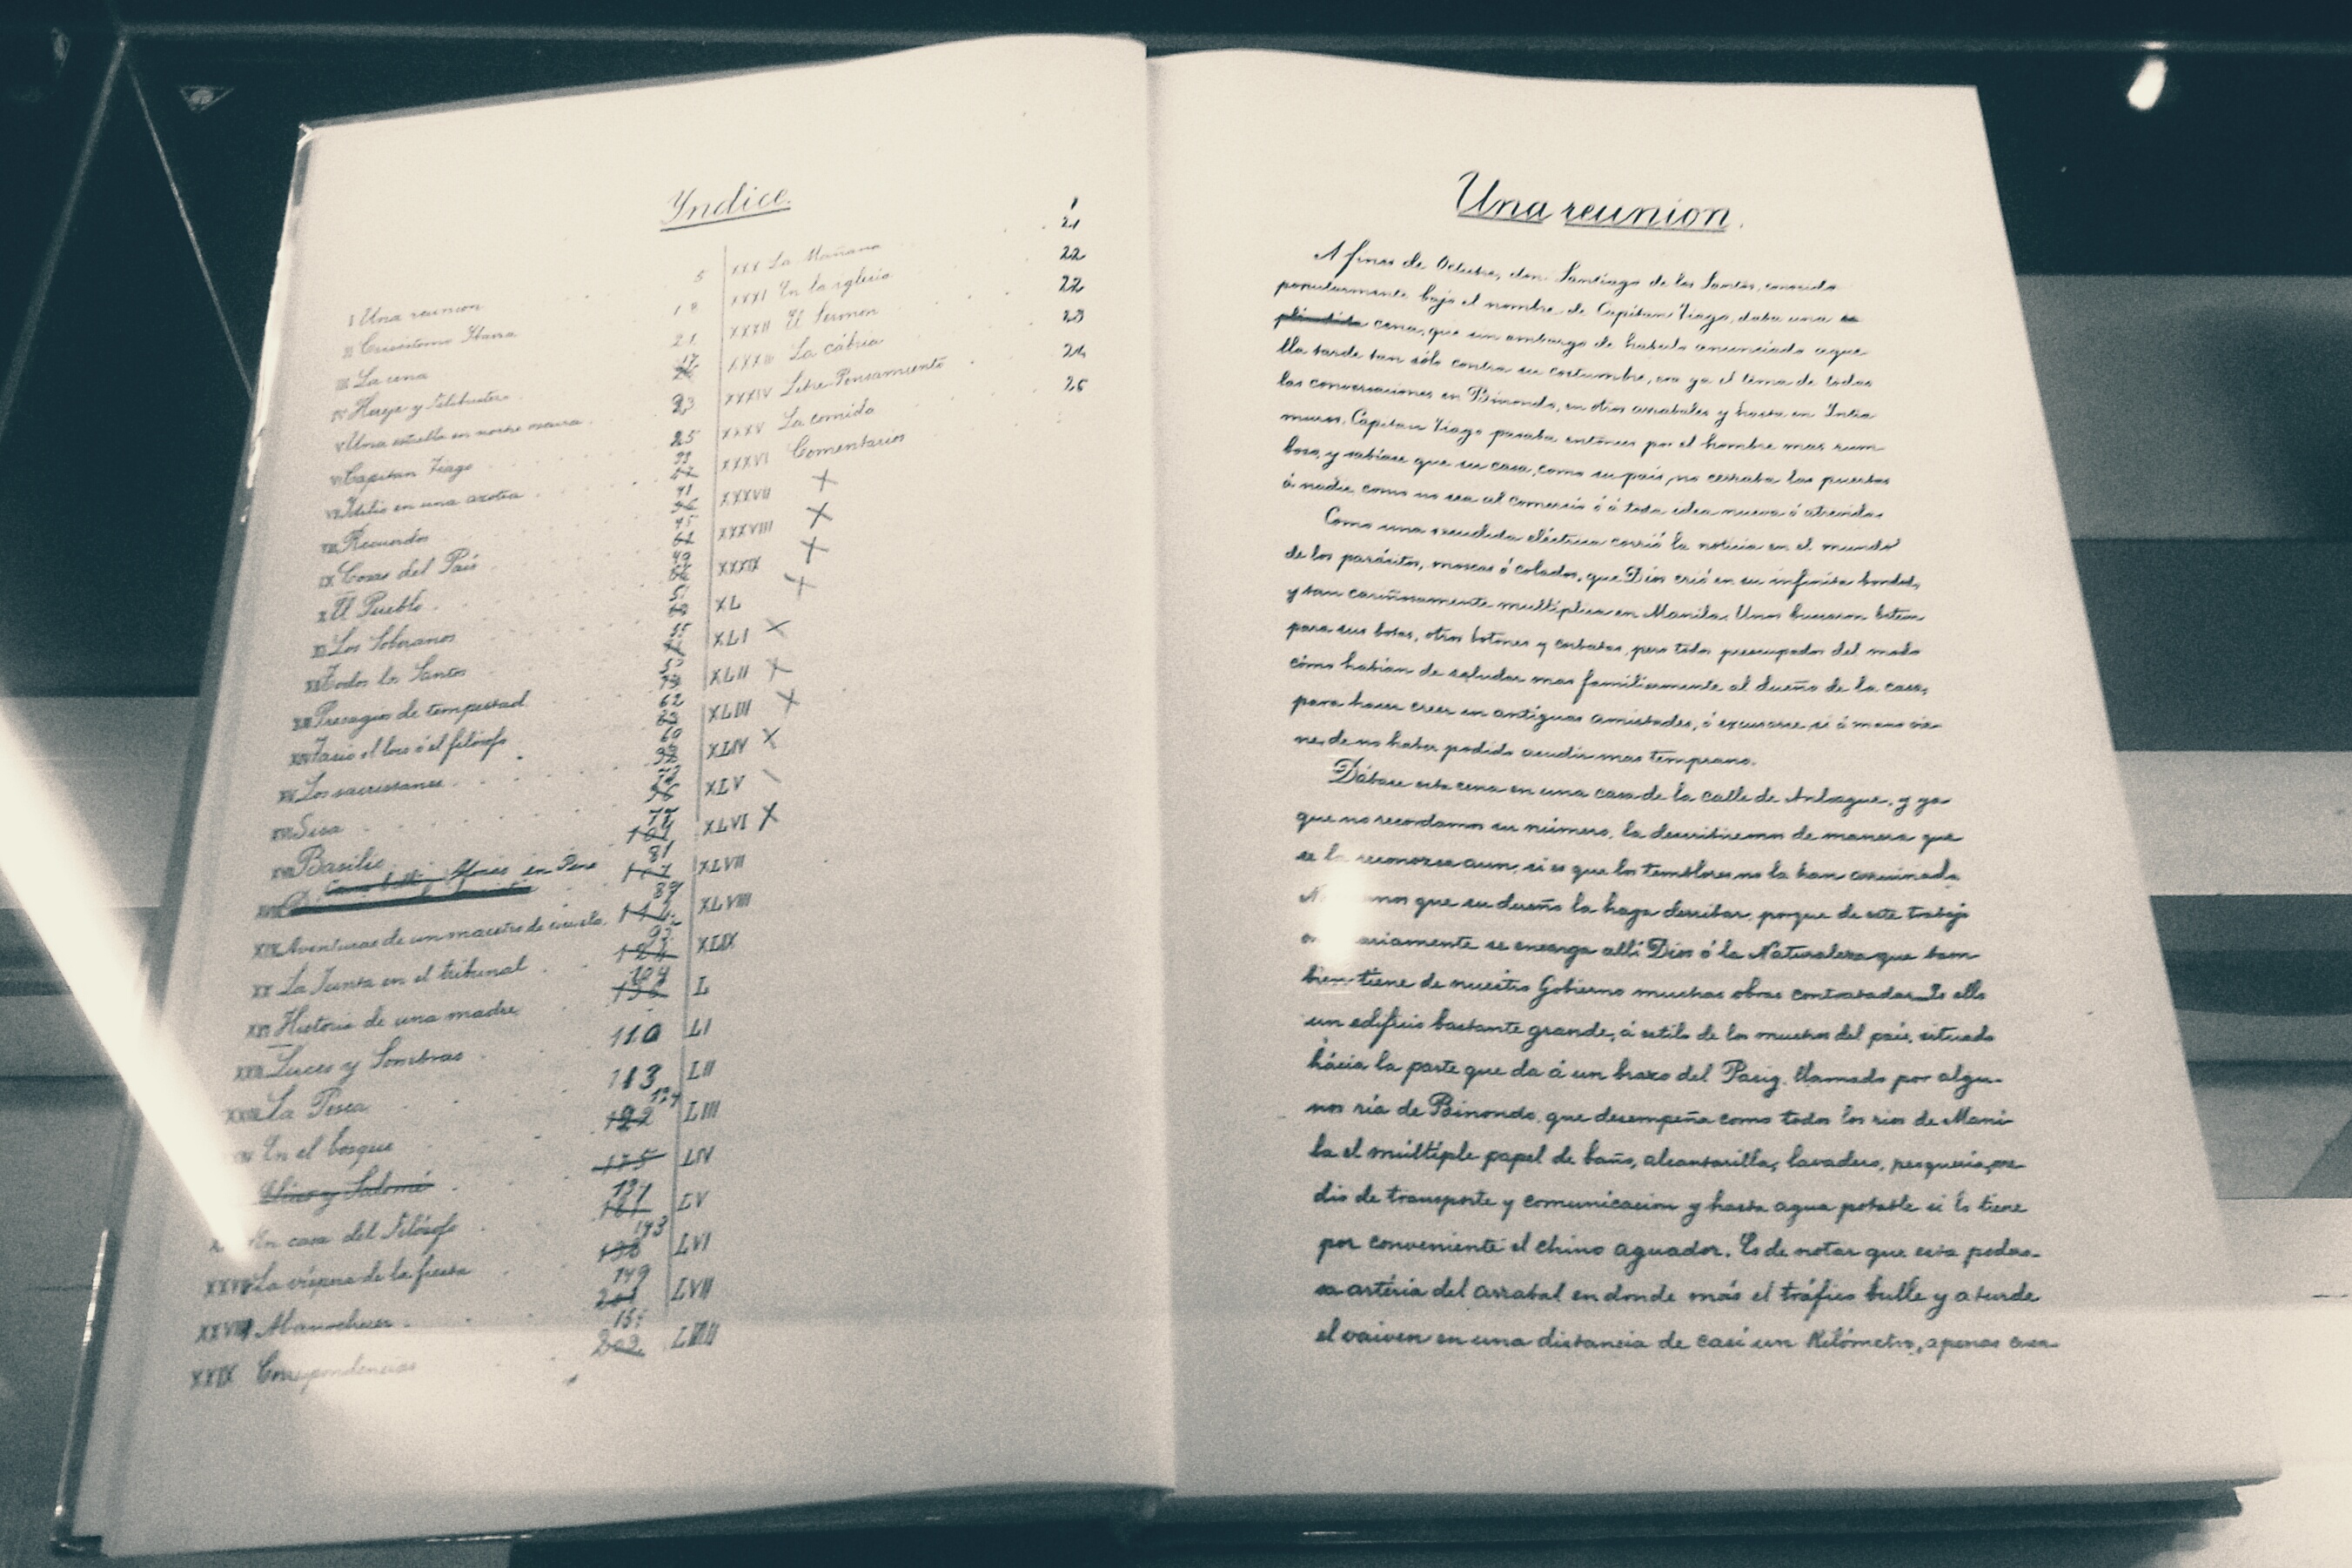 Yndice.
I Una reunion 5
II Crisóstomo Ibarra 18
III La cena 21
IV Hereje y Filibustero
V Una estrella en noche oscura 23
VI Capitan Tiago 25
VII Idilio en una azotea
VIII Recuerdos 41
IX Cosas del País 45
X El Pueblo 49
XI Los Soberanos 51
XII Todos los Santos 55
XIII Presagios de tempestad
XIV Tasio el loco ó el filósofo 62
XV Los sacristanes
XVI Sisa
XVII Basilio 77
Almas en Pena 81
XIX Aventuras de un maestro de escuela
XX La Junta en el tribunal
XXI Historia de una madre 104
XXII Luces y Sombras 110
XXIII La Pesca 113
En el bosque
Elias y Salomé
En casa del Filósofo 137
XXVII La víspera de la fiesta 143
XXVIII Al anochecer 149
XXIX Correspondencias
XXX La Mañana
XXXI En la iglesia 21
XXXII El Sermon 22
XXXIII La cábria
XXXIV Libre-Pensamiento 23
XXXV La comida 24
XXXVI Comentarios 25
XXXVII X
XXXVIII X
XXXIX X
XL X
XLI X
XLII X
XLIII X
XLIV X
XLV
XLVI X
XLVII
XLVIII
XLIX
L
LI
LII
LIII
LIV
LV
LVI
LVII
LVIII
Una reunion.
A fines de Octubre, don Santiago de los Santos, conocido
popularmente bajo el nombre de Capitan Tiago, daba una
cena, que sin embargo de haberlo anunciado aque
lla tarde tan sólo contra su costumbre, era ya el tema de todas
las conversaciones en Binondo, en otros arrabales y hasta en Intra
muros. Capitan Tiago pasaba entónces por el hombre mas rum
boso, y sabíase que su casa, como su país, no cerraba las puertas
á nadie, como no sea al comercio ó á toda idea nueva ó atrevida.
Como una sacudida eléctrica corrió la noticia en el mundo
de los parásitos, moscas ó colados, que Dios crió en su infinita bondad,
y tan cariñosamente multiplica en Manila. Unos buscaron betun
para sus botas, otros botones y corbatas, pero todos preocupados del modo
cómo habían de saludar mas familiarmente al dueño de la casa,
para hacer creer en antiguas amistades, ó excusarse, si á mano vie-
ne, de no haber podido acudir mas temprano.
Dábase esta cena en una casa de la calle de Anloague, y ya
que no recordamos su número, la describiremos de manera que
se la reconozca aun, si es que los temblores no la han arruinado.
que su dueño la haga derribar, porque de este trabajo
se encarga allí Dios ó la Naturaleza que tam
bien tiene de nuestro Gobierno muchas obras contratadas. Es ello
un edificio bastante grande, á estilo de los muchos del país, situado
hácia la parte que da á un brazo del Pasig, llamado por algu-
nos ría de Binondo, que desempeña como todos los rios de Mani-
la el múltiple papel de baño, alcantarilla, lavadero, pesquería, me-
dio de transporte y comunicacion y hasta agua potable si lo tiene
por conveniente el chino aguador. Es de notar que esta podero-
sa artéria del arrabal en donde más el tráfico bulle y aturde
el vaiven en una distancia de casi un Kilómetro, apenas cuen-